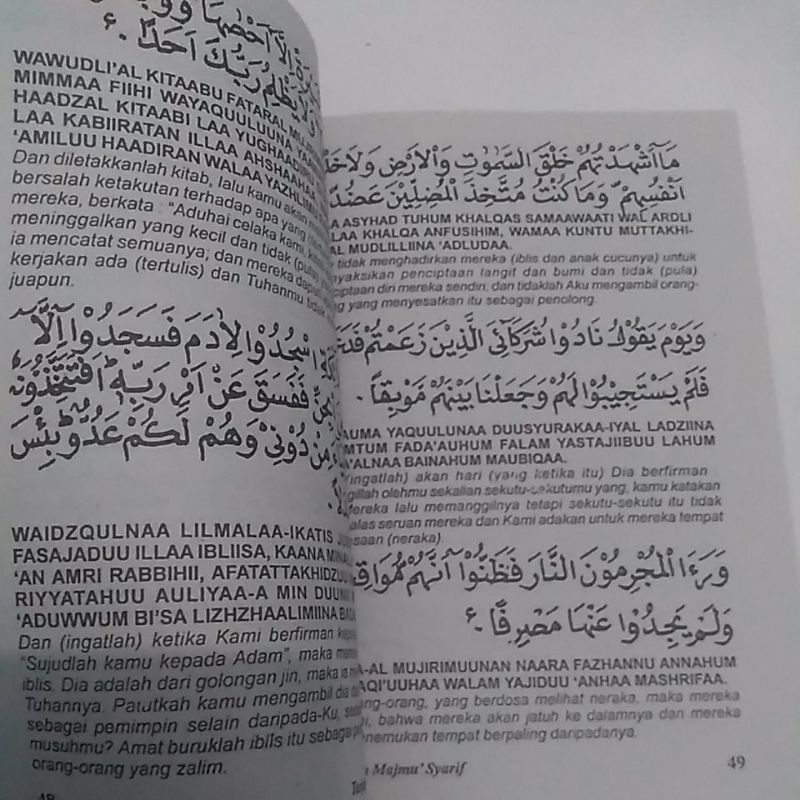 وَلَا يَظْلِمُ رَبُّكَ أَحَدًا
WAWUDLI'AL KITAABU FATARAL
MIMMAA FIIHI WAYAQUULUUNA
HAADZAL KITAABI LAA
LAA KABIIRATAN ILLAA
'AMILUU HAADIRAN WALAA
Dan diletakkanlah kitab, lalu kamu akan
bersalah ketakutan terhadap apa yang
mereka, berkata : "Aduhai celaka kami,
meninggalkan yang kecil dan tidak (pula)
ia mencatat semuanya; dan mereka dapati
kerjakan ada (tertulis) dan Tuhanmu tidak
juapun.
اسْجُدُوْا لِاٰدَمَ فَسَجَدُوْٓا اِلَّآ
فَفَسَقَ عَنْ اَمْرِ رَبِّهٖ اَفَتَتَّخِذُوْنَهٗ
مِنْ دُوْنِيْ وَهُمْ لَكُمْ عَدُوٌّ بِئْسَ
WAIDZQULNAA LILMALAA-IKATIS
FASAJADUU ILLAA IBLIISA, KAANA
'AN AMRI RABBIHII, AFATATTAKHIDZUU
RIYYATAHUU AULIYAA-A MIN DUUNII
'ADUWWUM BI'SA LIZHZHAALIMIINA
Dan (ingatlah) ketika Kami berfirman
"Sujudlah kamu kepada Adam", maka
iblis. Dia adalah dari golongan jin, maka ia
Tuhannya. Patutkah kamu mengambil dia
sebagai pemimpin selain daripada-Ku,
musuhmu? Amat buruklah iblis itu sebagai
orang-orang yang zalim.
مَآ اَشْهَدْتُّهُمْ خَلْقَ السَّمٰوٰتِ وَالْاَرْضِ وَلَا
اَنْفُسِهِمْ وَمَا كُنْتُ مُتَّخِذَ الْمُضِلِّيْنَ عَضُدًا
ASYHAD TUHUM KHALQAS SAMAAWAATI WAL ARDLI
LAA KHALQA ANFUSIHIM, WAMAA KUNTU MUTTAKHI-
AL MUDLILLIINA 'ADLUDAA.
tidak menghadirkan mereka (iblis dan anak cucunya) untuk
penciptaan langit dan bumi dan tidak (pula)
diri mereka sendiri; dan tidaklah Aku mengambil orang-
yang menyesatkan itu sebagai penolong.
وَيَوْمَ يَقُوْلُ نَادُوْا شُرَكَآئِيَ الَّذِيْنَ زَعَمْتُمْ
فَلَمْ يَسْتَجِيْبُوْا لَهُمْ وَجَعَلْنَا بَيْنَهُمْ مَوْبِقًا
YAQUULUNAA DUUSYURAKAA-IYAL LADZIINA
FADA'AUHUM FALAM YASTAJIIBUU LAHUM
BAINAHUM MAUBIQAA.
(ingatlah) akan hari (yang ketika itu) Dia berfirman
olehmu sekalian sekutu-sekutumu yang, kamu katakan
mereka lalu memanggilnya tetapi sekutu-sekutu itu tidak
seruan mereka dan Kami adakan untuk mereka tempat
(neraka).
وَرَءَا الْمُجْرِمُوْنَ النَّارَ فَظَنُّوْٓا اَنَّهُمْ
وَلَمْ يَجِدُوْا عَنْهَا مَصْرِفًا
A-AL MUJIRIMUUNAN NAARA FAZHANNU ANNAHUM
WALAM YAJIDUU 'ANHAA MASHRIFAA.
yang berdosa melihat neraka, maka mereka
bahwa mereka akan jatuh ke dalamnya dan mereka
menemukan tempat berpaling daripadanya.
Majmu' Syarif
49